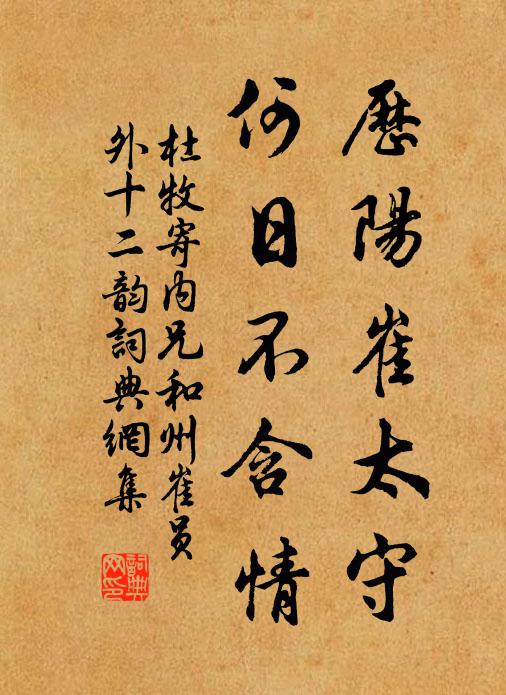 歷陽崔太守
何日不含情
杜牧寄内兄和州崔員
外十二韵詞典網集
詞典
网印